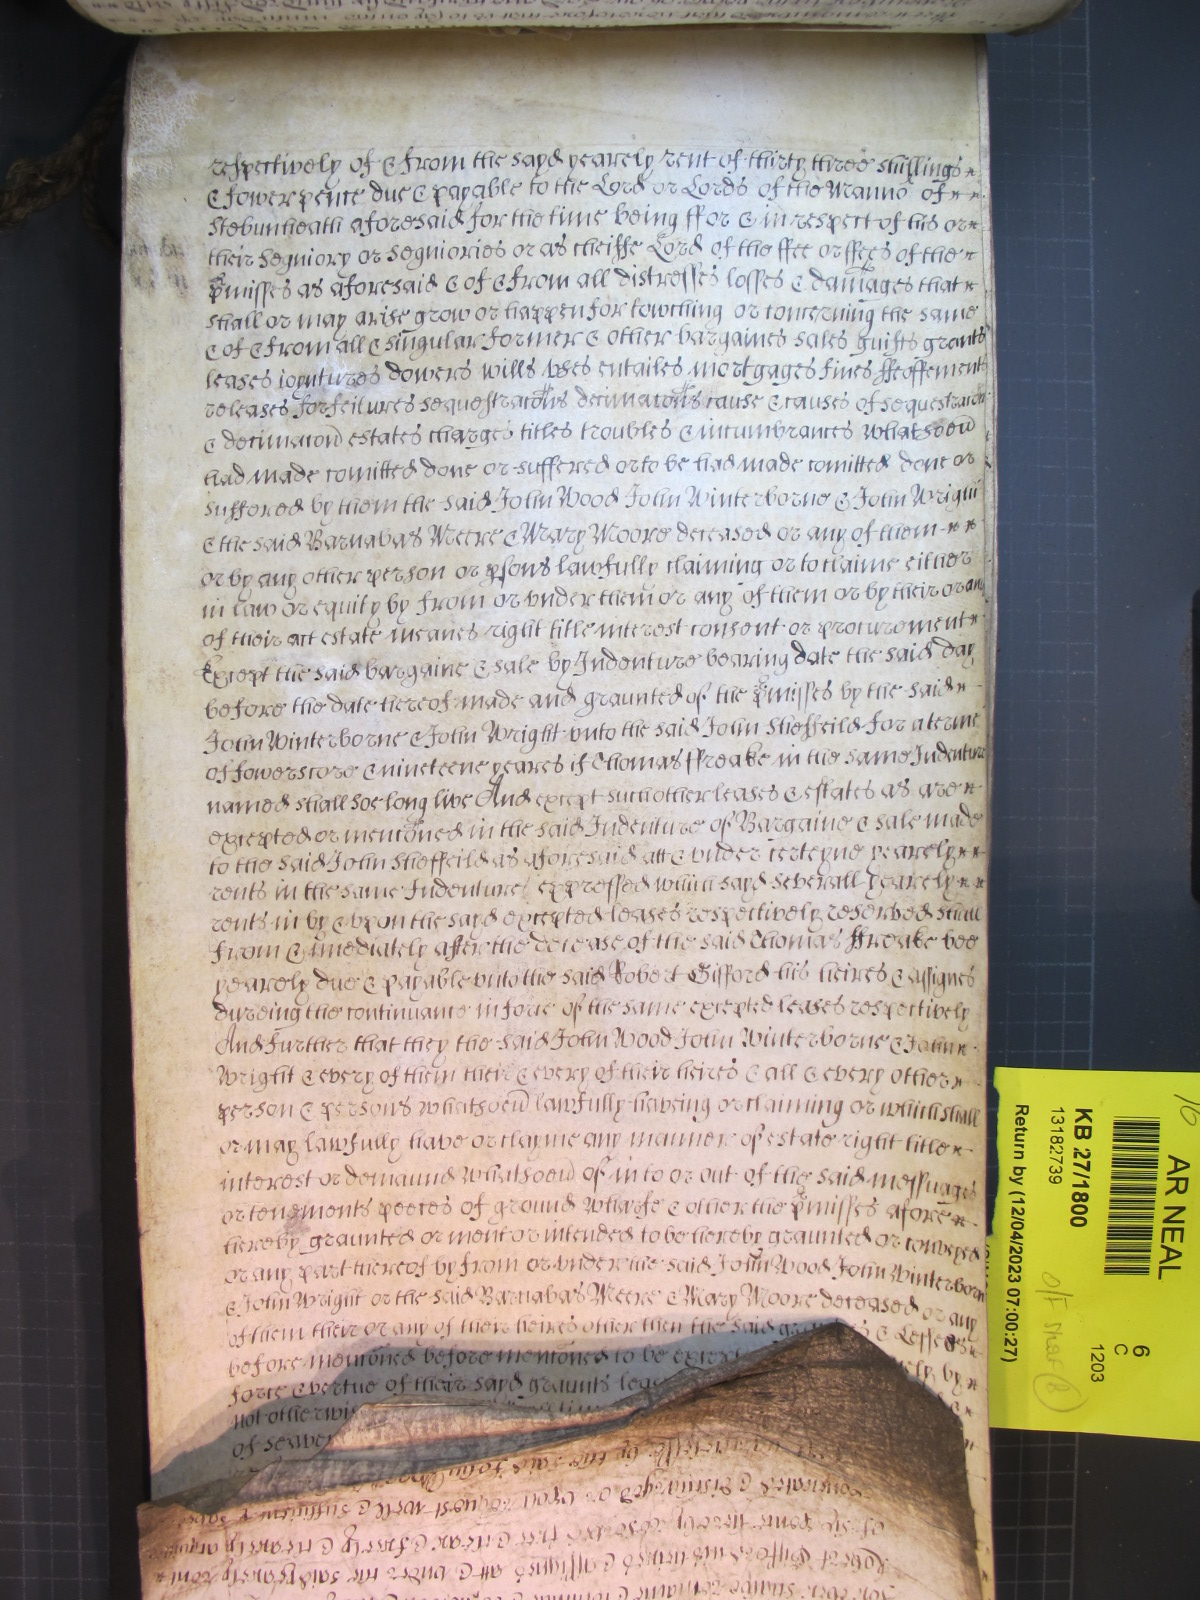 respectively of & from the sayd yearely rent of thirty three shillings
& fower pence due & payable to the Lord or Lords of the Mannor of
Stebunheath aforesaid for the time being ffor & in respect of his or
their Segniory or Segniories or as cheiffe Lord of the ffee or ffees of the
p̱misses as aforesaid & of & from all distresses losses & damages that
shall or may arise grow or happen for towching or concerning the same
& of & from all & singular former & other bargaines sales guifts grants
leases ioyntures dowers wills vses entailes mortgages fines ffeoffements
releases forfeitures sequestracõns decimacõns cause & causes of sequestracõn
& decimacon estates charges titles troubles & incumbrances whatsoeu
had made comitted done or suffered or to be had made comitted done or
suffered by them the said John Wood John Winterborne & John Wright
& the said Barnabas Meere & Mary Moore deceased or any of them
or by any other person or psons lawfully claiming or to claime either
in law or equity by from or vnder them or any of them or by their or any
of their act estate meanes right title interest consent or procurement
Except the said bargaine & sale by Indenture bearing date the said day
before the date hereof made and graunted of the p̱misses by the said
John Winterborne & John Wright vnto the said John Sheffeild for a terme
of fowerscore & nineteene yeares if Thomas ffreake in the same Indenture
named shall soe long live And except such other leases & estates as are
excepted or mencõned in the said Indenture of Bargaine & sale made
to the said John Sheffeild as aforesaid att & vnder certeyne yearely
rents in the same Indenture expressed which sayd severall yearely
rents in by & vpon the sayd excepted leases respectively reserved shall
from & imediately after the decease of the said Thomas ffreake bee
yearely due & payable vnto the said Robert Gifford his heires & assignes
dureing the continuance in force of the same excepted leases respectively
And further that they the said John Wood John Winterborne & John
Wright & every of them their & every of their heires & all & every other
person & persons whatsoeu lawfully haveing or claiming or which shall
or may lawfully have or clayme any manner of estate right title
interest or demaund whatsoeu of in to or out of the said messuages
or tenements peeces of ground wharfe & other the p̱misses afore
hereby graunted or ment or intended to be hereby graunted or conveyed
or any part thereof by from or vnder the said John Wood John Winterborn
& John Wright or the said Barnabas Meere & Mary Moore deceased or any
of them their or any of their heires other then the said & Lessees
before mencõned before mencõned to be by
force & vertue of their sayd graunts
not otherwise
of
by the said John
&
of six
Robert Gifford his heires & assignes att & vnder the said yearely
AR NEAL
6
C
1203
KB 27/1800
13182739
Return by (12/04/2023 07:00:27)